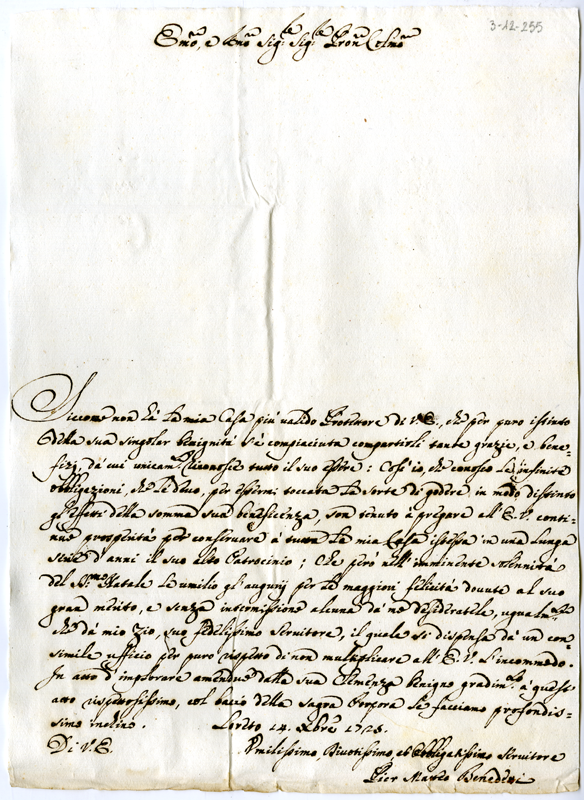 3-12-255
Emo, e Rmo Sig.re Sig.re Pron Colmo
Siccome non hà la mia Casa più valido Protettore di V.E., che per puro istinto
della sua singolar benignità s'è compiaciuta compartirli tante grazie, e bene-
fizj, da cui unicam.te riconosce tutto il suo essere: Così io, che conosco le infinite
obbligazioni, che le devo, per essermi toccata la sorte di godere in modo distinto
gl'effetti della somma sua beneficenza, son tenuto à pregare all'E.V. conti-
nue prosperità per conservare à tutta la mia Casa istessa in una lunga
serie d'anni il suo alto Patrocinio; Che però nell'imminente solennità
del SS.mo Natale le umilio gl'augurij per le maggiori felicità dovute al suo
gran merito, e senza intermissione alcuna da me desideratele, ugualm.te
che da mio Zio, suo fedelissimo servitore, il quale si dispensa da un con-
simile ufficio per puro rispetto di non multiplicare all'E.V. l'incommodo.
In atto d'implorare amendue dalla sua Clemenza benigno gradim.to à quest'
atto riverentissimo, col bacio della sagra Porpora le facciamo profondis-
simo inchino. Loreto 14. Xbre 1725.
Di V.E.
Vmilissimo, Divotissimo ed Obbligatissimo Servitore
Pier Matteo Benedetti